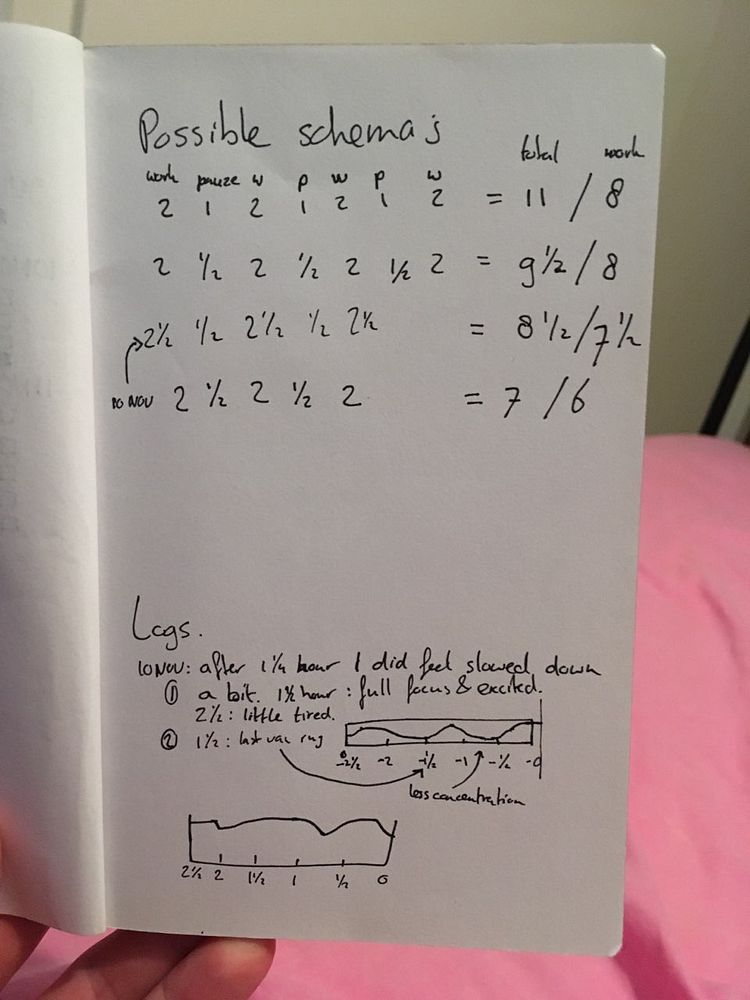 Possible schema's
total work
work pauze w p w p w
2 1 2 1 2 1 2 = 11 / 8
2 1/2 2 1/2 2 1/2 2 = 9 1/2 / 8
2 1/2 1/2 2 1/2 1/2 2 1/2 = 8 1/2 / 7 1/2
10 NOV 2 1/2 2 1/2 2 = 7 / 6
Logs.
10 NOV: after 1 1/4 hour I did feel slowed down
① a bit. 1 1/2 hour: full focus & excited.
2 1/2: little tired.
② 1 1/2: last van
-2 1/2 -2 -1 1/2 -1 -1/2 -0
less concentration
2 1/2 2 1 1/2 1 1/2 0